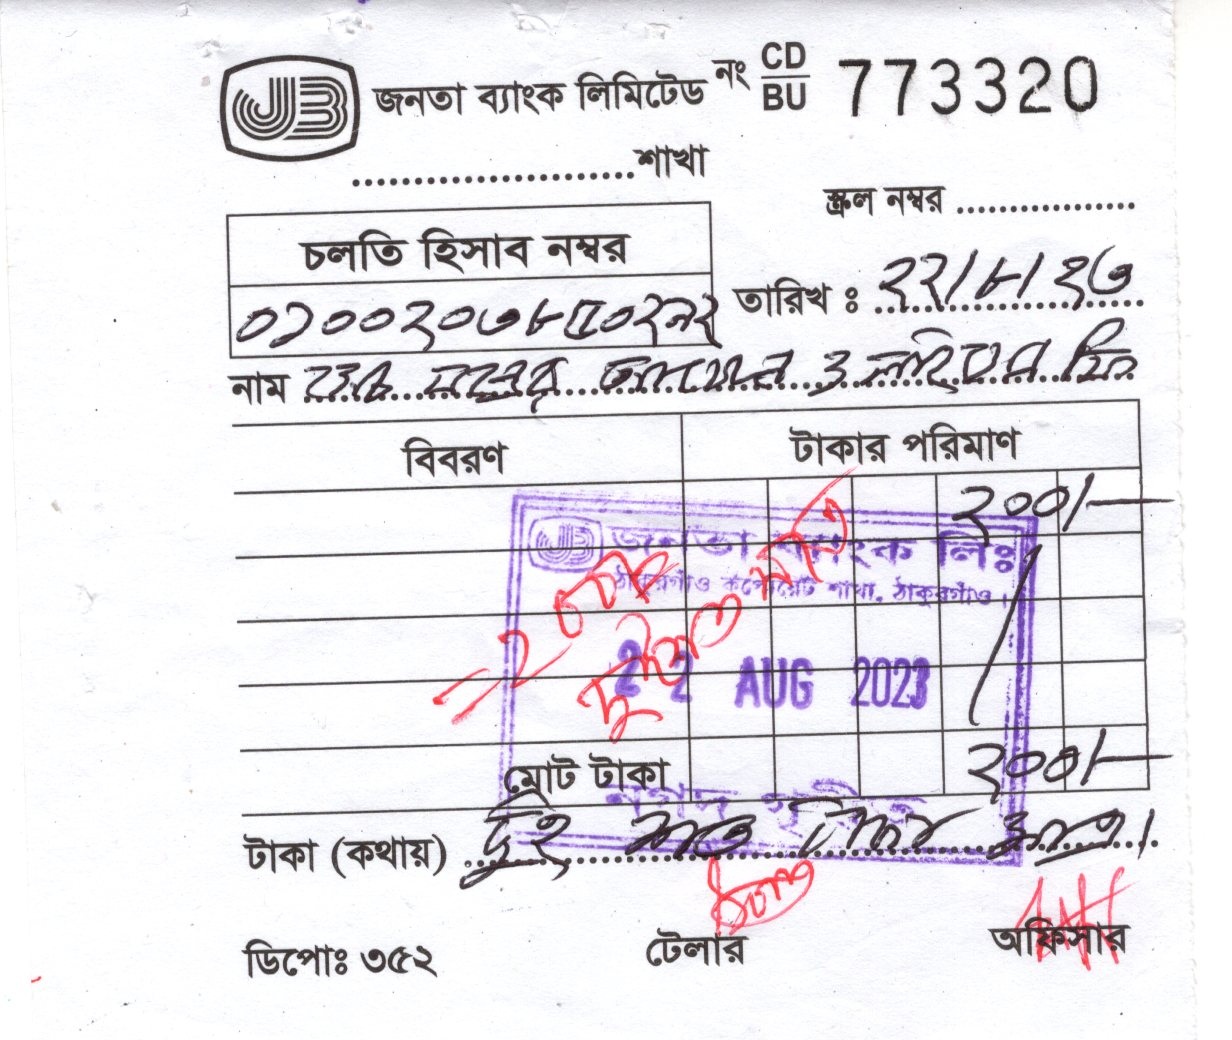 JB জনতা ব্যাংক লিমিটেড নং CD/BU 773320
......................শাখা
স্ক্রল নম্বর .................
চলতি হিসাব নম্বর
০১০০২০৩৮৫০২৯২
তারিখ : ২২/৮/২৩
নাম ও লাইসেন্স ফি
বিবরণ টাকার পরিমাণ
২০০/-
JB জনতা ব্যাংক লিঃ
ঠাকুরগাঁও কর্পোরেট শাখা, ঠাকুরগাঁও।
দুইশত
22 AUG 2023
মোট টাকা ২০০/-
টাকা (কথায়) দুই শত টাকা মাত্র।
টেলার অফিসার
ডিপোঃ ৩৫২